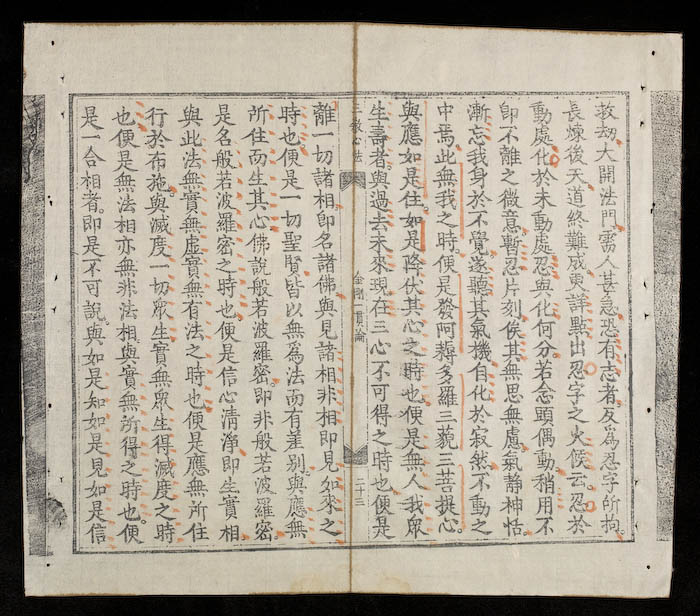 救劫大開法門需人甚急恐有志者反為忍字所拘。
長煉後天道終難成更詳點出忍字之火候云忍於
動處化於未動處忍與化何分若念頭偶動稍用不
即不離之微意暫忍片刻俟其無思無慮氣静神恬
漸忘我身於不覺遂聽其氣機自化於寂然不動之
中焉此無我之時便是發阿耨多羅三藐三菩提心。
與應如是住如是降伏其心之時也便是無人我眾
生壽者與過去未來現在三心不可得之時也便是
三教心法 金剛一貫論 二十三
離一切諸相即名諸佛與見諸相非相即見如來之
時也便是一切聖賢皆以無為法而有差别與應無
所住而生其心佛說般若波羅密即非般若波羅密
是名般若波羅密之時也便是信心清淨即生實相
與此法無實無虛實無有法之時也便是應無所住
行於布施與滅度一切眾生實無眾生得滅度之時
也便是無法相亦無非法相與實無所得之時也便
是一合相者即是不可說與如是知如是見如是信